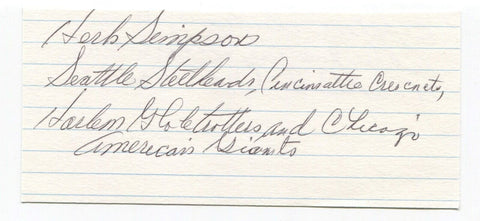 Herb Simpson
Seattle Steelheads, Cincinnattie Crescnets,
Harlem Globetrotters and Chicago
American Giants